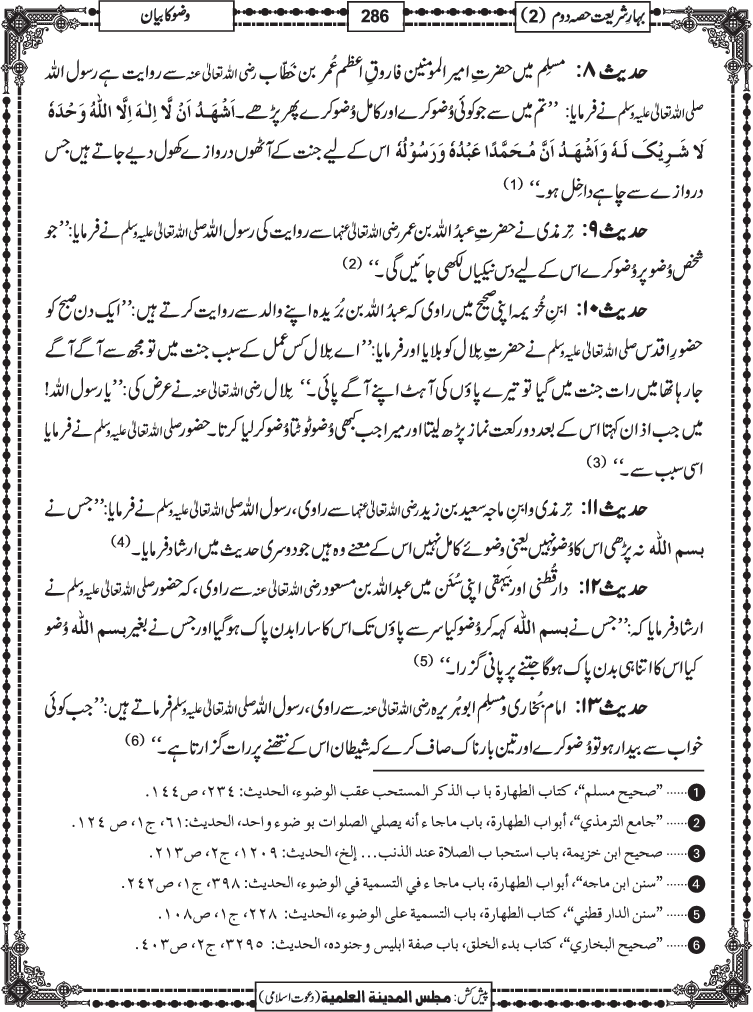 بہارِ شریعت حصہ دوم (2)
286
وضو کا بیان
حدیث ۸: مسلِم میں حضرتِ امیر المومنین فاروقِ اعظم عُمر بن خَطّاب رضی اللہ تعالیٰ عنہ سے روایت ہے رسول اللہ
صلی اللہ تعالیٰ علیہ وسلم نے فرمایا: ’’تم میں سے جو کوئی وُضو کرے اور کامل وُضو کرے پھر پڑھے۔ اَشْھَدُ اَنْ لَّا اِلٰـہَ اِلَّا اللّٰہُ وَحْدَہٗ
لَا شَرِیْکَ لَـہٗ وَاَشْھَدُ اَنَّ مُحَمَّدًا عَبْدُہٗ وَرَسُوْلُہٗ اس کے لیے جنت کے آٹھوں دروازے کھول دیے جاتے ہیں جس
دروازے سے چاہے داخِل ہو۔‘‘ (1)
حدیث ۹: تِرمذی نے حضرتِ عبدُ اللہ بن عمر رضی اللہ تعالیٰ عنہما سے روایت کی رسول اللہ صلی اللہ تعالیٰ علیہ وسلم نے فرمایا: ’’جو
شخص وُضو پر وُضو کرے اس کے لیے دس نیکیاں لکھی جائیں گی۔‘‘ (2)
حدیث ۱۰: ابنِ خُزیمہ اپنی صحیح میں راوی کہ عبدُ اللہ بن بُرَیدہ اپنے والد سے روایت کرتے ہیں: ’’ایک دن صبح کو
حضورِ اقدس صلی اللہ تعالیٰ علیہ وسلم نے حضرتِ بِلال کو بلایا اور فرمایا: ’’اے بِلال کس عمل کے سبب جنت میں تو مجھ سے آگے آگے
جا رہا تھا میں رات جنت میں گیا تو تیرے پاؤں کی آہٹ اپنے آگے پائی۔‘‘ بِلال رضی اللہ تعالیٰ عنہ نے عرض کی: ’’یا رسول اللہ!
میں جب اذان کہتا اس کے بعد دو رکعت نماز پڑھ لیتا اور میرا جب کبھی وُضو ٹوٹتا وُضو کر لیا کرتا۔ حضور صلی اللہ تعالیٰ علیہ وسلم نے فرمایا
اسی سبب سے۔‘‘ (3)
حدیث ۱۱: تِرمذی و ابنِ ماجہ سعید بن زید رضی اللہ تعالیٰ عنہما سے راوی، رسول اللہ صلی اللہ تعالیٰ علیہ وسلم نے فرمایا: ’’جس نے
بسم اللہ نہ پڑھی اس کا وُضو نہیں یعنی وضوئے کامل نہیں اس کے معنے وہ ہیں جو دوسری حدیث میں ارشاد فرمایا۔ (4)
حدیث ۱۲: دار قُطنی اور بَیہقی اپنی سُنَن میں عبداللہ بن مسعود رضی اللہ تعالیٰ عنہ سے راوی، کہ حضور صلی اللہ تعالیٰ علیہ وسلم نے
ارشاد فرمایا کہ: ’’جس نے بسم اللہ کہہ کر وُضو کیا سر سے پاؤں تک اس کا سارا بدن پاک ہو گیا اور جس نے بغیر بسم اللہ وُضو
کیا اس کا اتنا ہی بدن پاک ہو گا جتنے پر پانی گزرا۔‘‘ (5)
حدیث ۱۳: امام بُخاری و مسلِم ابو ہُریرہ رضی اللہ تعالیٰ عنہ سے راوی، رسول اللہ صلی اللہ تعالیٰ علیہ وسلم فرماتے ہیں: ’’جب کوئی
خواب سے بیدار ہو تو وُضو کرے اور تین بار ناک صاف کرے کہ شیطان اس کے نتھنے پر رات گزارتا ہے۔‘‘ (6)
1 ...... ”صحيح مسلم“، كتاب الطهارة باب الذكر المستحب عقب الوضوء، الحديث: ٢٣٤، ص١٤٤.
2 ...... ”جامع الترمذي“، أبواب الطهارة، باب ماجاء أنه يصلي الصلوات بو ضوء واحد، الحديث: ٦١، ج١، ص ١٢٤.
3 ...... صحيح ابن خزيمة، باب استحبا ب الصلاة عند الذنب... إلخ، الحديث: ١٢٠٩، ج٢، ص٢١٣.
4 ...... ”سنن ابن ماجه“، أبواب الطهارة، باب ماجاء في التسمية في الوضوء، الحديث: ٣٩٨، ج١، ص٢٤٢.
5 ...... ”سنن الدار قطني“، كتاب الطهارة، باب التسمية على الوضوء، الحديث: ٢٢٨، ج١، ص١٠٨.
6 ...... ”صحيح البخاري“، كتاب بدء الخلق، باب صفة ابليس وجنوده، الحديث: ٣٢٩٥، ج٢، ص٤٠٣.
پیش کش: مجلس المدينة العلمية (دعوتِ اسلامی)